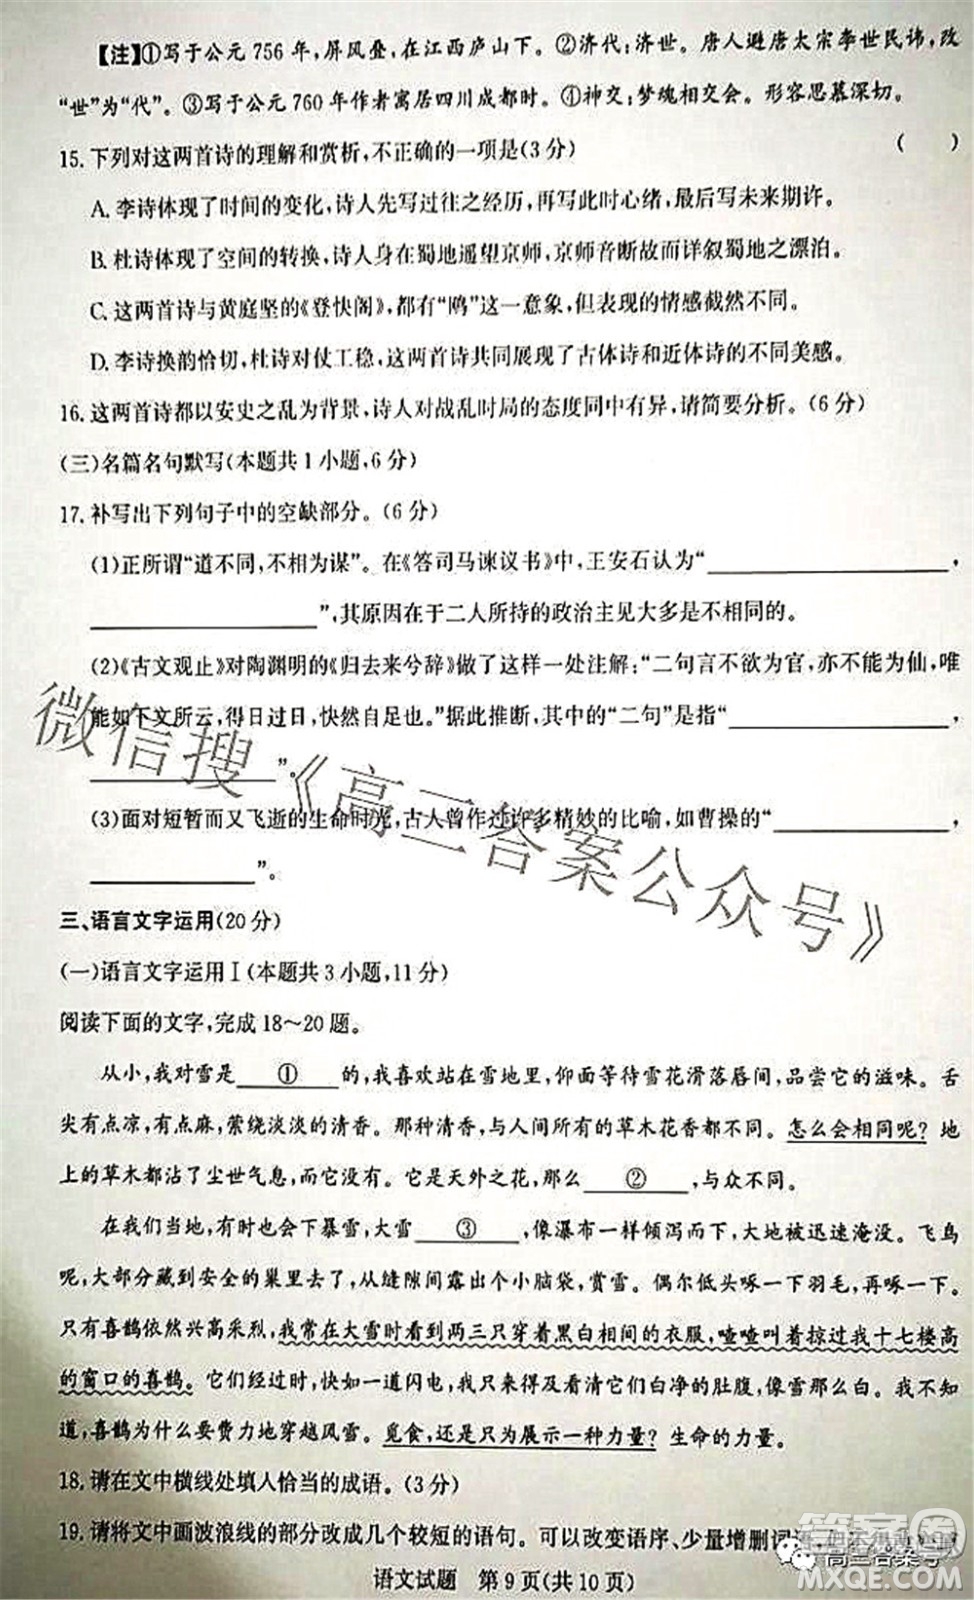 【注】①写于公元 756 年,屏风叠,在江西庐山下。②济代:济世。唐人避唐太宗李世民讳,改
“世”为“代”。③写于公元 760 年作者寓居四川成都时。④神交:梦魂相交会。形容思慕深切。
15. 下列对这两首诗的理解和赏析,不正确的一项是(3 分) (　　)
A. 李诗体现了时间的变化,诗人先写过往之经历,再写此时心绪,最后写未来期许。
B. 杜诗体现了空间的转换,诗人身在蜀地遥望京师,京师音断故而详叙蜀地之漂泊。
C. 这两首诗与黄庭坚的《登快阁》,都有“鸥”这一意象,但表现的情感截然不同。
D. 李诗换韵恰切,杜诗对仗工稳,这两首诗共同展现了古体诗和近体诗的不同美感。
16. 这两首诗都以安史之乱为背景,诗人对战乱时局的态度同中有异,请简要分析。(6 分)
(三)名篇名句默写(本题共 1 小题,6 分)
17. 补写出下列句子中的空缺部分。(6 分)
(1)正所谓“道不同,不相为谋”。在《答司马谏议书》中,王安石认为“____________,
____________”,其原因在于二人所持的政治主见大多是不相同的。
(2)《古文观止》对陶渊明的《归去来兮辞》做了这样一处注解:“二句言不欲为官,亦不能为仙,唯
能如下文所云,得日过日,快然自足也。”据此推断,其中的“二句”是指“____________,
____________”。
(3)面对短暂而又飞逝的生命时光,古人曾作过许多精妙的比喻,如曹操的“____________,
____________”。
三、语言文字运用(20 分)
(一)语言文字运用Ⅰ(本题共 3 小题,11 分)
阅读下面的文字,完成 18～20 题。
从小,我对雪是 ① 的,我喜欢站在雪地里,仰面等待雪花滑落唇间,品尝它的滋味。舌
尖有点凉,有点麻,萦绕淡淡的清香。那种清香,与人间所有的草木花香都不同。怎么会相同呢? 地
上的草木都沾了尘世气息,而雪花没有。它是天外之花,那么 ② ,与众不同。
在我们当地,有时也会下暴雪,大雪 ③ ,像瀑布一样倾泻而下,大地被迅速淹没。飞鸟
呢,大部分藏到安全的巢里去了,从缝隙间露出个小脑袋,赏雪。偶尔低头啄一下羽毛,再啄一下。
只有喜鹊依然兴高采烈,我常在大雪时看到两三只穿着黑白相间的衣服,喳喳叫着掠过我十七楼高
的窗口的喜鹊。它们经过时,快如一道闪电,我只来得及看清它们白净的肚腹,像雪那么白。我不知
道,喜鹊为什么要费力地穿越风雪。觅食,还是只为展示一种力量? 生命的力量。
18. 请在文中横线处填入恰当的成语。(3 分)
19. 请将文中画波浪线的部分改成几个较短的语句。可以改变语序、少量增删词
语文试题　第 9 页(共 10 页)
微信搜《高三答案公众号》
高三答案号
答案圈
MXQE.COM